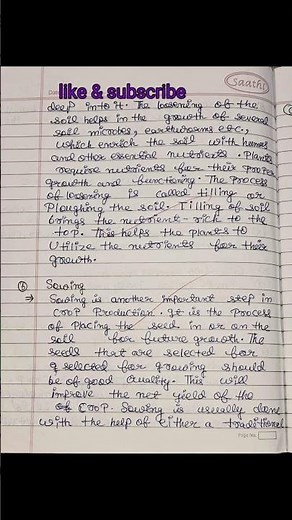 Saathi
Date
like & subscribe
deep into it. The loosening of the
soil helps in the growth of several
soil microbes, earthworms etc.,
which enrich the soil with humus
and other essential nutrients. Plants
require nutrients for their proper
growth and functioning. The process
of loosening is called tilling or
Ploughing the soil. Tilling of soil
brings the nutrient-rich to the
top. This helps the plants to
Utilize the nutrients for their
growth.
Sowing
⇒ Sowing is another important step in
Crop Production. It is the process
of placing the seed in or on the
soil for future growth. The
seeds that are selected for
selected for growing should
be of good Quality. This will
improve the net yield of the
of Crop. Sowing is usually done
with the help of either a traditional
Page No